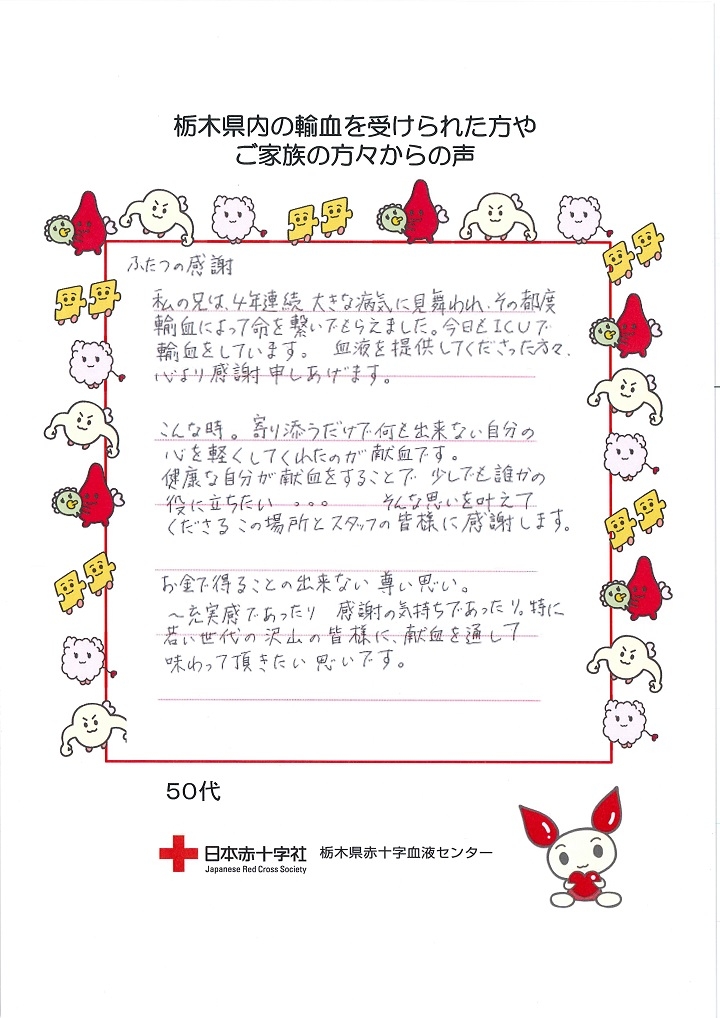 栃木県内の輸血を受けられた方や
ご家族の方々からの声
ふたつの感謝
私の兄は、4年連続 大きな病気に見舞われ、その都度
輸血によって命を繋いでもらえました。今日もICUで
輸血をしています。 血液を提供してくださった方々、
心より感謝申しあげます。
こんな時。寄り添うだけで何も出来ない自分の
心を軽くしてくれたのが献血です。
健康な自分が献血をすることで 少しでも誰かの
役に立ちたい 。。。 そんな思いを叶えて
くださる この場所とスタッフの皆様に感謝します。
お金で得ることの出来ない 尊い思い。
～充実感であったり 感謝の気持ちであったり。特に
若い世代の沢山の皆様に、献血を通して
味わって頂きたい 思いです。
50代
日本赤十字社 栃木県赤十字血液センター
Japanese Red Cross Society